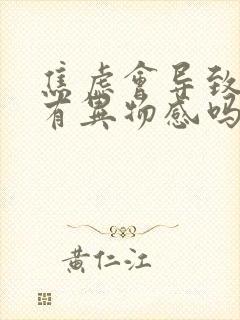 焦虑會导致
有異物感吗
黄仁江